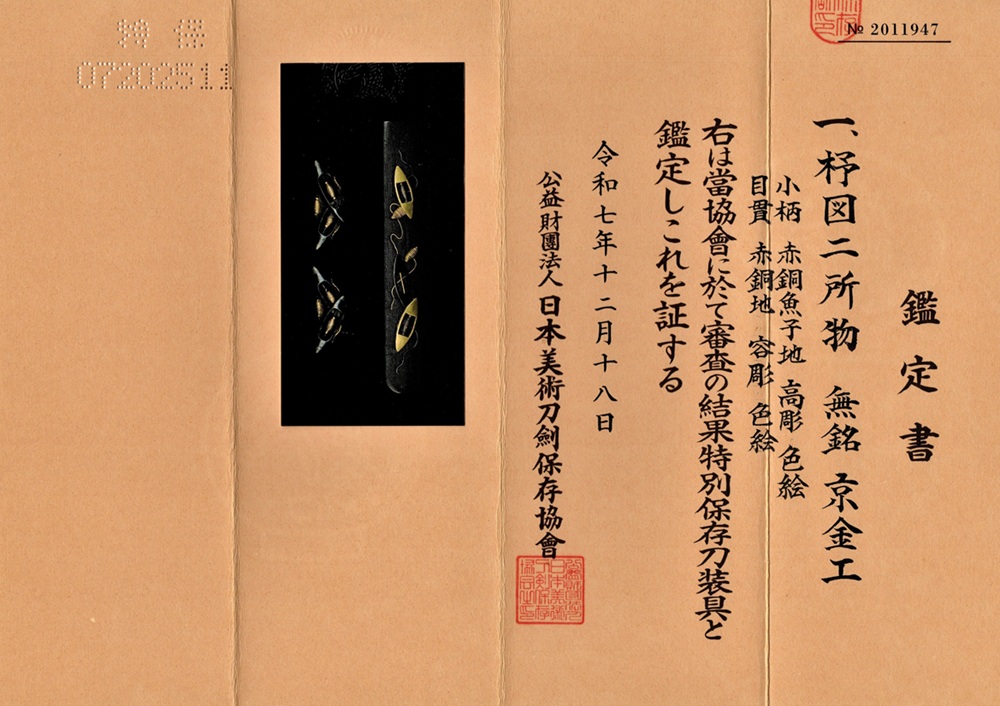 № 2011947
鑑定書
一、杼図二所物 無銘 京金工
小柄 赤銅魚子地 高彫 色絵
目貫 赤銅地 容彫 色絵
右は當協會に於て審査の結果特別保存刀装具と
鑑定しこれを証する
令和七年十二月十八日
公益財團法人 日本美術刀劍保存協會
特保
07202511